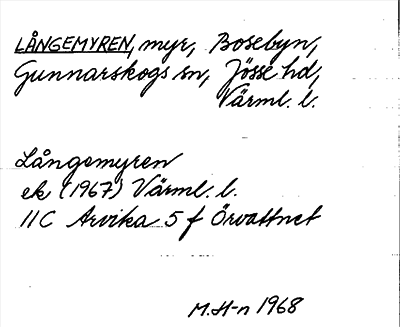 LÅNGEMYREN, myr, Bosebyn,
Gunnarskogs sn, Jösse hd,
Värml. l.
Långemyren
ek (1967) Värml. l.
11C Arvika 5 f Örvattnet
M.H-n 1968